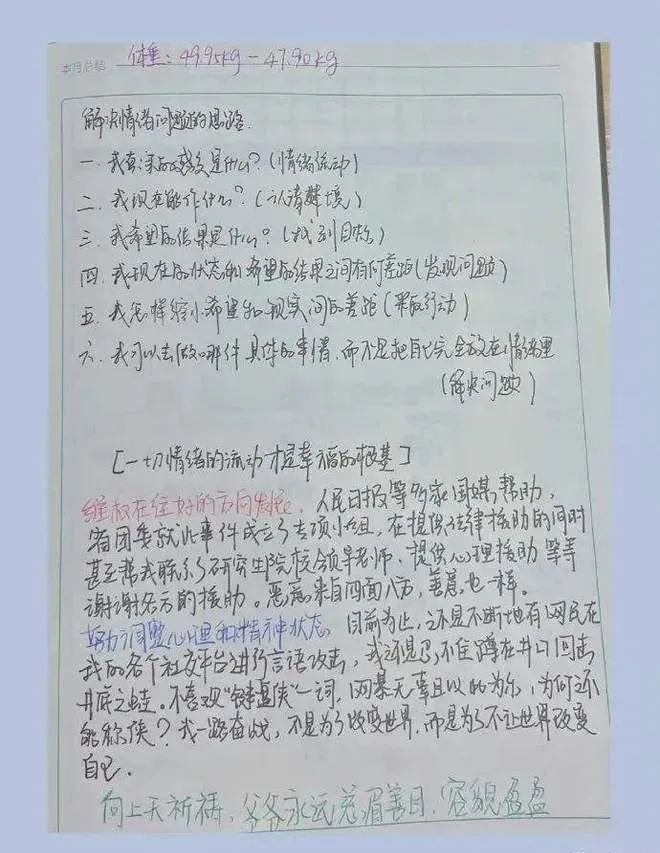 本月总结 体重：49.95kg－47.90kg
解决情绪问题的思路
一．我真实的感受是什么？(情绪流动)
二．我现在能作什么？(认清环境)
三．我希望的结果是什么？(找到目标)
四．我现在的状态和希望的结果之间有何差距(发现问题)
五．我怎样缩小希望和现实间的差距(采取行动)
六．我可以去做哪件具体的事情，而不是把自己完全放在情绪里
(解决问题)
[一切情绪的流动才是幸福的根基]
维权在往好的方向发展。人民日报等多家国媒帮助，
省团委就此事件成立了专项小组，在提供法律援助的同时
甚至帮我联系了研究生院校领导老师、提供心理援助等等
谢谢各方的援助。恶意来自四面八方，善意也一样。
努力调整心理和精神状态。目前为止，还是不断地有网民在
我的各个社交平台进行言语攻击，我还是忍不住蹲在井口回击
井底之蛙。不喜欢“键盘侠”一词，网暴无辜且以此为乐，为何还
能称侠？我一路奋战，不是为了改变世界，而是为了不让世界改变
自己．
向上天祈祷，爷爷永远慈眉善目，容貌盈盈